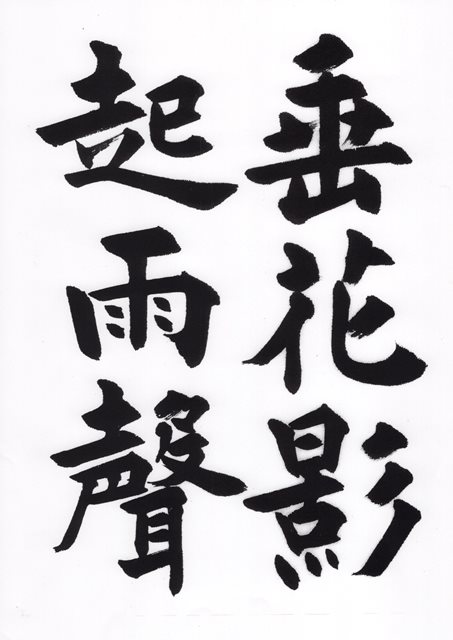 垂花影
起雨聲